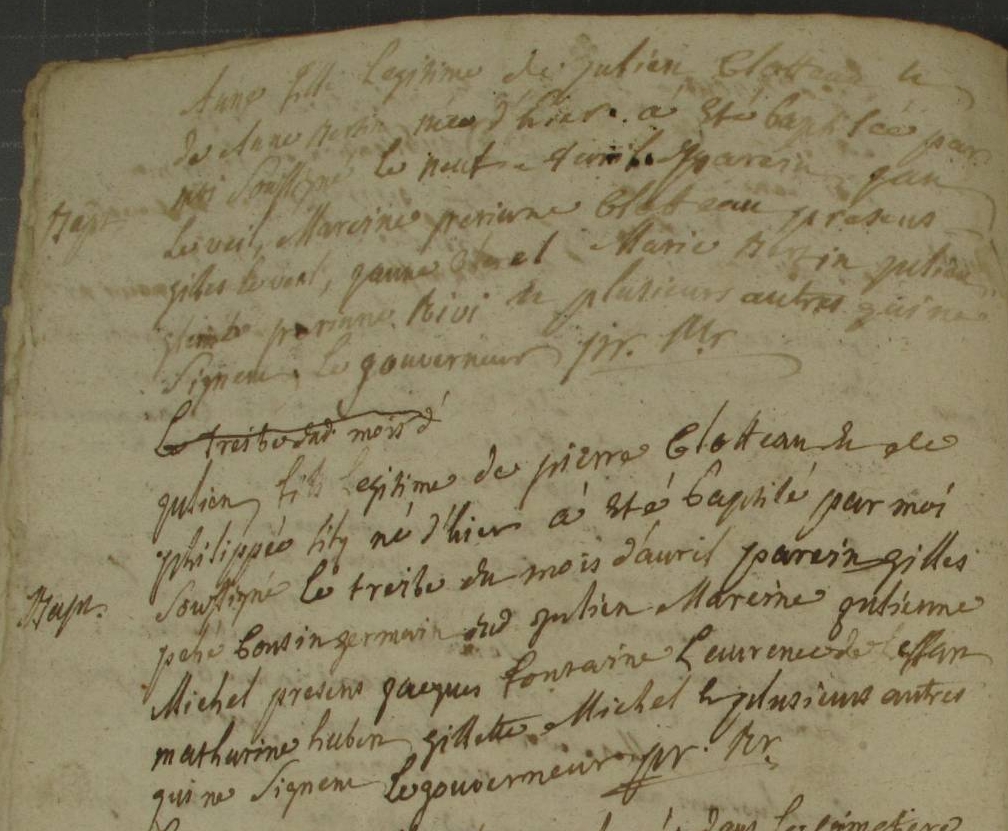 Anne fille Legitime de julien Clotteau &
de Anne née d'hier a été baptisée par
moi soussigné le neuf avril parein jan
Bapt.
Leveil, Mareine perinne Clotteau presens
gilles Leveil, janne et Marie julien
perinne Rivi & plusieurs autres qui ne
signent. Le gouverneur pr. Rr
Le treiʃe dud. mois d
julien fils Legitime de pierre Clotteau & de
philippée né d'hier a été baptisé par moi
soussigné le treise du mois d'avril parein gilles
Bapt.
cousin germain dud julien Mareine julienne
Michel presens jacques fontaine Laurence de
mathurine hubin gillette Michel & plusieurs autres
qui ne signent Le gouverneur pr. Rr.
dans le cimetiere